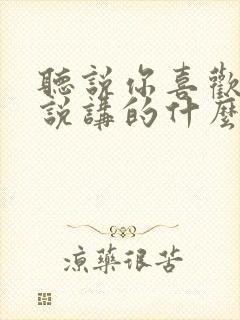 聽說你喜歡
說講的什麼
涼藥很苦